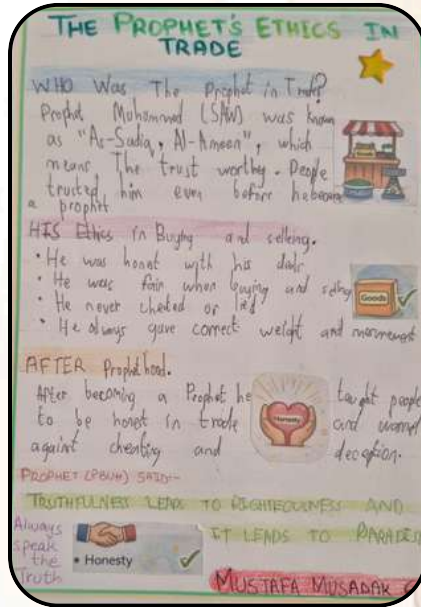 THE PROPHET'S ETHICS IN
TRADE
WHO Was The Prophet in Trade?
Prophet Muhammed (SAW) was known
as "As-Sadiq, Al-Ameen", which
means The trust worthy. People
trusted him even before he became
a prophet
HIS Ethics in Buying and selling.
• He was honst with his deals
• He was fair when buying and selling
• He never cheated or lied
Goods
• He always gave correct weight and
AFTER Prophethood.
After becoming a Prophet he taught people
to be honest in trade and warned
Honesty
against cheating and deception.
PROPHET (PBUH) SAID:-
TRUTHFULNESS LEADS TO RIGHTEOUSNESS AND
IT LEADS TO
Always
speak
the
Truth
• Honesty
MUSTAFA MUSADAK